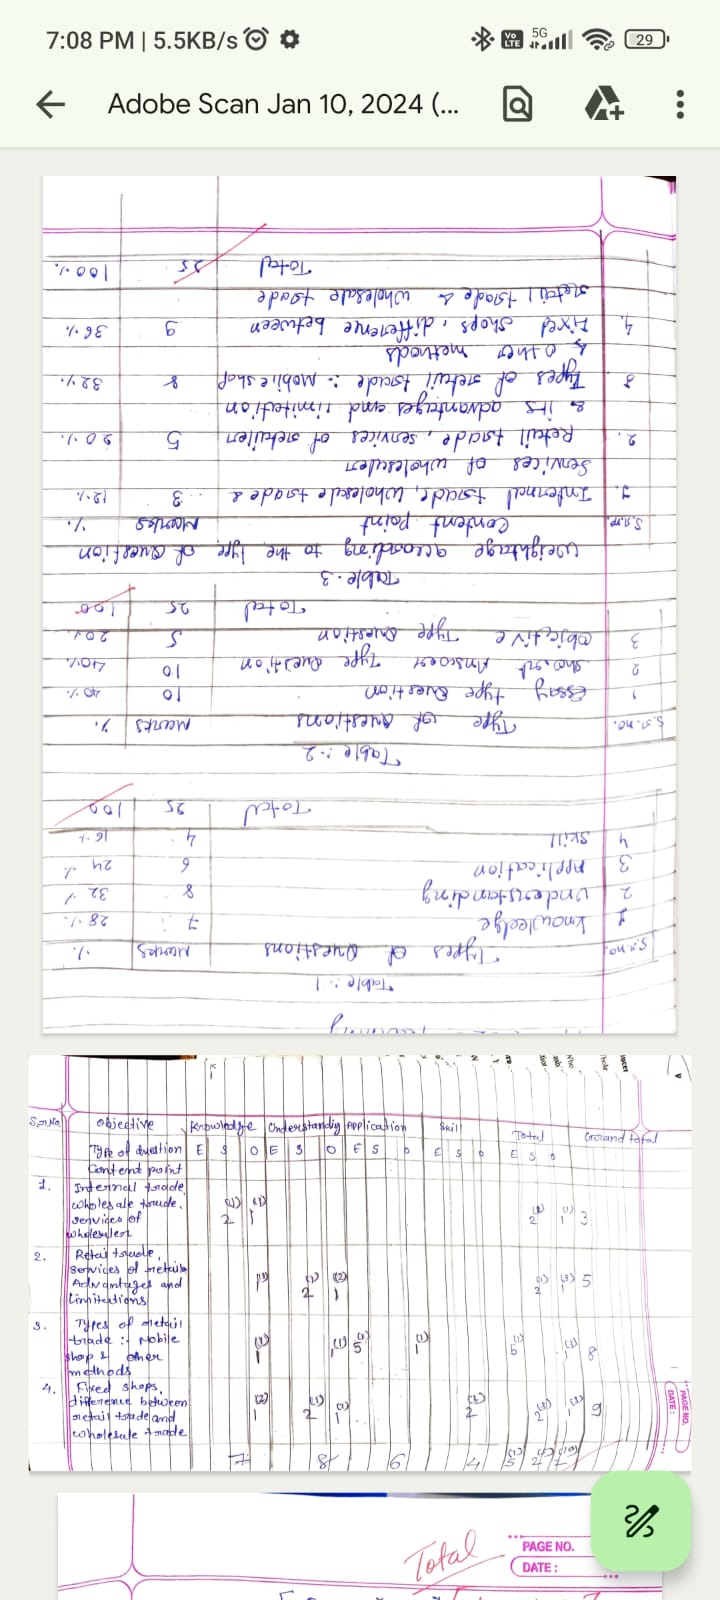 7:08 PM | 5.5KB/s
Vo LTE 5G 29
Adobe Scan Jan 10, 2024 (...
Table :- 1
S.r.no. Types of Questions Marks %.
1 knowledge 7 28 %.
2 Understanding 8 32 %
3 Application 6 24 %
4 Skill 4 16 %
Total 25 100
Table :- 2
S.r.no. Type of Questions Marks %.
1 Essay type Question 10 40 %.
2 Short Answer Type Question 10 40%.
3 Objective Type Question 5 20%.
Total 25 100
Table - 3
Weightage according to the type of Question
S.r.no. Content point Marks %.
1. Internal trade, wholesale trade & 3 12%.
Services of wholesaler
2. Retail trade, services of retailer 5 20%.
& its advantages and limitation
3 Types of retail trade :- Mobile shop 8 32%.
& other methods
4. Fixed shops, difference between 9 36%.
retail trade & wholesale trade
Total 25 100%.
Objective Knowledge Understandig Application Skill Total Grand total
Type of Question E S O E S O E S O E S O E S O
Content point
1. Internal trade,
wholesale trade,
services of
wholesaler
(1) 2 (1) 1 (1) 2 (1) 1 3
2. Retail trade,
Services of retailer
Advantages and
limitations
(1) 2 (2) 1 (1) 2 (3) 1 5
3. Types of retail
trade :- Mobile
shop & other
methods
(1) 1 (1) 1 (1) 5 (1) 1 (1) 5 8
4. Fixed shops,
difference between
retail trade and
wholesale trade
(2) 1 (1) 2 (1) 1 2 9
7 8 4
PAGE NO.
DATE :
Total
PAGE NO.
DATE :